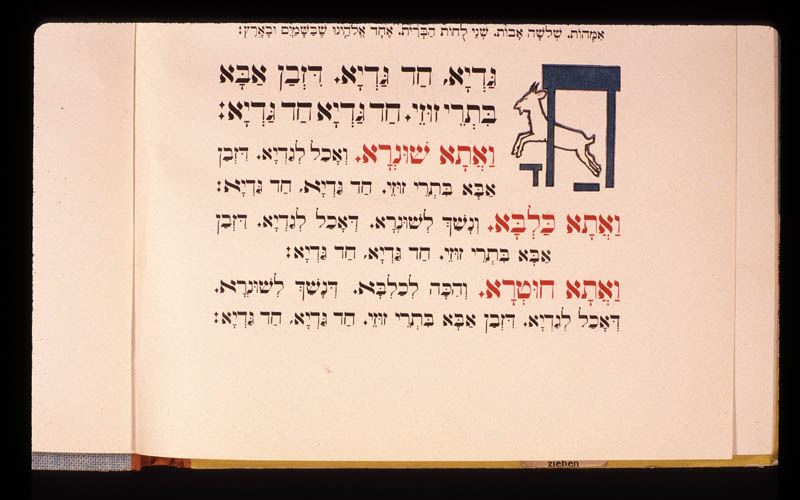 אִמָּהוֹת. שְׁלֹשָׁה אָבוֹת. שְׁנֵי לֻחוֹת הַבְּרִית. אֶחָד אֱלֹהֵינוּ שֶׁבַּשָּׁמַיִם וּבָאָרֶץ:
גַּדְיָא, חַד גַּדְיָא. דִּזְבַן אַבָּא
בִּתְרֵי זוּזֵי. חַד גַּדְיָא חַד גַּדְיָא:
וַאֲתָא שׁוּנְרָא. וְאָכַל לְגַדְיָא. דִּזְבַן
אַבָּא בִּתְרֵי זוּזֵי. חַד גַּדְיָא, חַד גַּדְיָא:
וַאֲתָא כַּלְבָּא. וְנָשַׁךְ לְשׁוּנְרָא. דְּאָכַל לְגַדְיָא. דִּזְבַן
אַבָּא בִּתְרֵי זוּזֵי. חַד גַּדְיָא, חַד גַּדְיָא:
וַאֲתָא חוּטְרָא. וְהִכָּה לְכַלְבָּא. דְּנָשַׁךְ לְשׁוּנְרָא.
דְּאָכַל לְגַדְיָא. דִּזְבַן אַבָּא בִּתְרֵי זוּזֵי. חַד גַּדְיָא, חַד גַּדְיָא:
ziehen